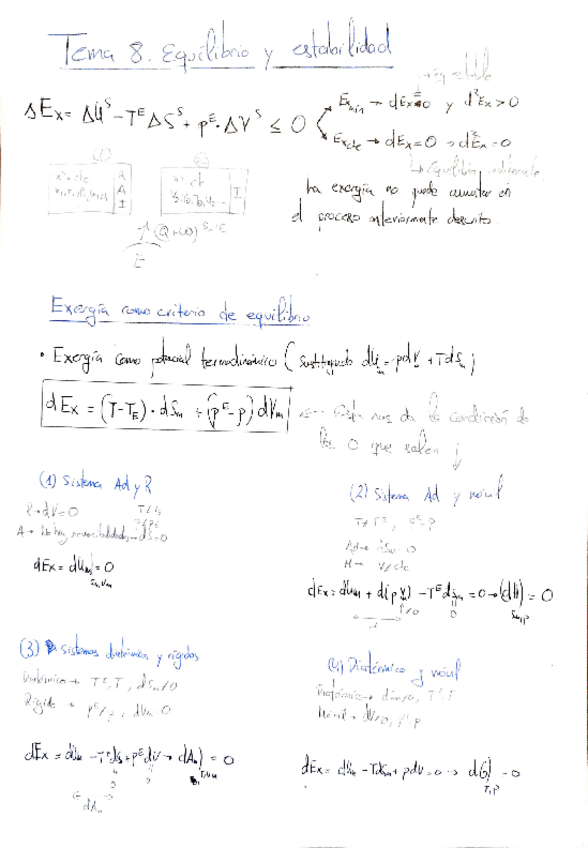 Tema 8. Equilibrio y estabilidad
→ Eq. estable
ΔEx = ΔU^S - T^E ΔS^S + p^E·ΔV^S ≤ 0
Ex min → dEx=0 y d²Ex>0
Ex cte → dEx=0 → d²Ex=0
(1)
R
A
I
I
↑(Q+W)^S-E
E
La exergía no puede aumentar en
el proceso anteriormente descrito
Exergía como criterio de equilibrio
• Exergía como potencial termodinámico (sustituyendo dUm = -pdV + TdSm)
dEx = (T-T_E)·dSm + (p^E-p)dVm
nos da la condición de
los 0 que salen
(1) Sistema Ad y R
R→dV=0
A→ No hay irreversibilidades→dS=0
dEx = dUm) = 0
Sm,Vm
(2) Sistema Ad y móvil
T≠T^E, p^E=p
dEx = dUm + d(pV) - T^E dSm = 0 → (dH) = 0
Sm,p
(3) Sistemas diatérmicos y rígidos
Diatérmico → T^E=T, dSm≠0
Rígido → p^E≠p, dVm=0
dEx = dUm - T^E dS + p^E dV → dAm) = 0
T,Vm
dAm
(4) Diatérmico y móvil
Diatérmico → dSm≠0, T^E=T
Móvil → dV≠0, p^E=p
dEx = dUm - TdSm + pdV = 0 → dG) = 0
T,p